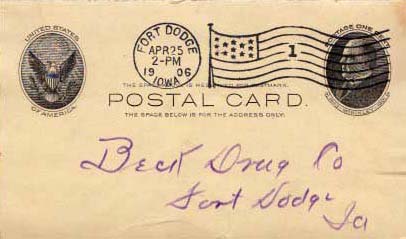 UNITED STATES
OF AMERICA
FORT DODGE
APR 25
2-PM
1906
IOWA
1
POSTAGE ONE
THE SPACE
POSTMARK.
POSTAL CARD.
THE SPACE BELOW IS FOR THE ADDRESS ONLY.
Beck Drug Co
Fort Dodge
Ia